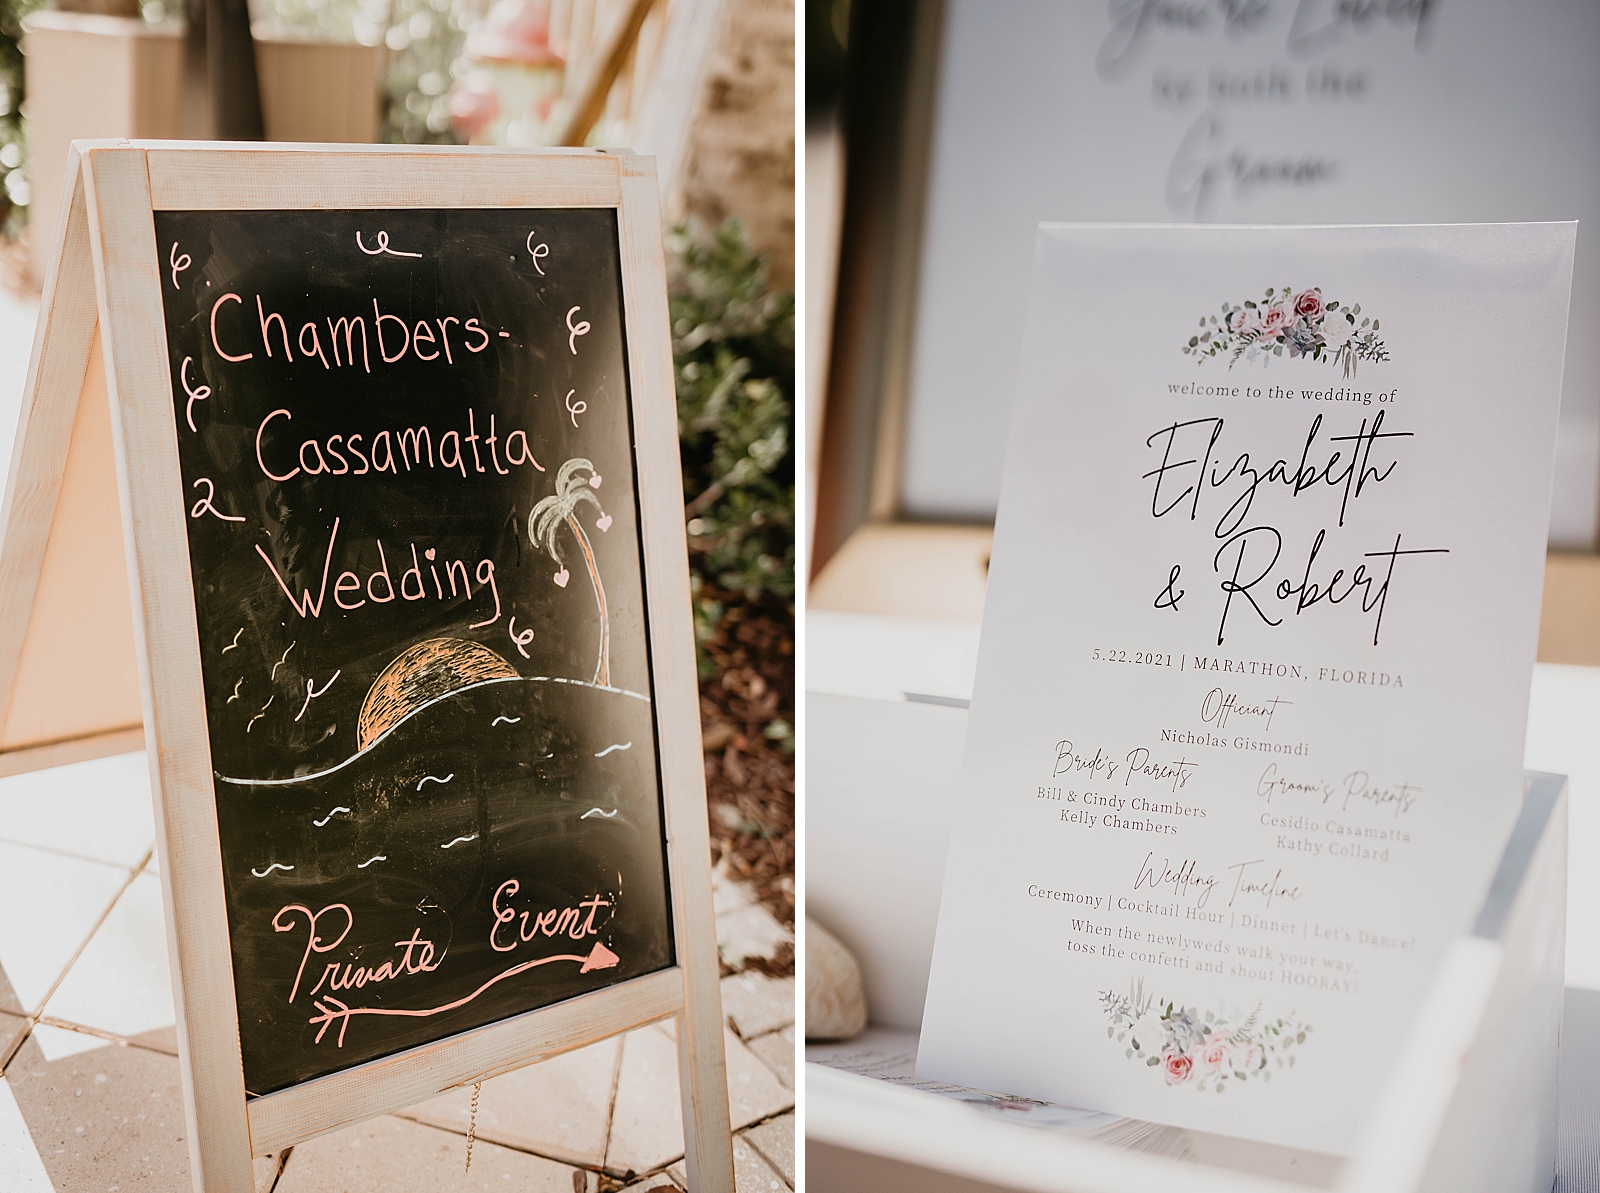 Chambers-
Cassamatta
Wedding
Private Event
You're Loved
by both the
Groom
welcome to the wedding of
Elizabeth
& Robert
5.22.2021 | MARATHON, FLORIDA
Officiant
Nicholas Gismondi
Bride's Parents
Bill & Cindy Chambers
Kelly Chambers
Groom's Parents
Cesidio Casamatta
Kathy Collard
Wedding Timeline
Ceremony | Cocktail Hour | Dinner | Let's Dance!
When the newlyweds walk your way,
toss the confetti and shout HOORAY!